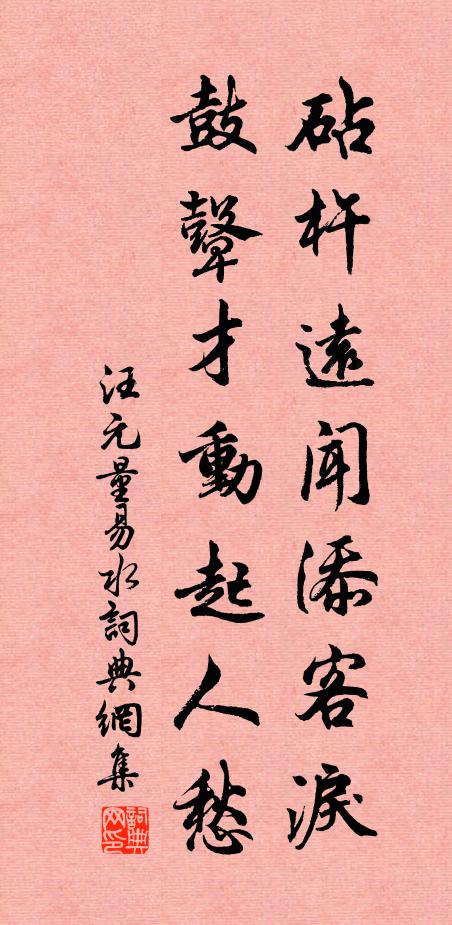 砧杵遠聞添客淚
鼓鼙才動起人愁
汪元量易水詞典網集
詞典
网印